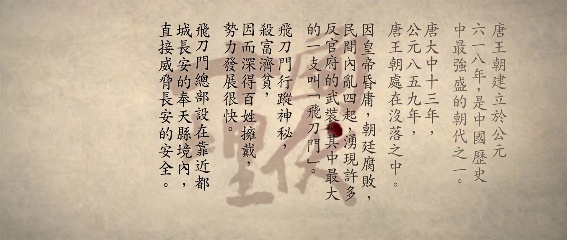 唐王朝建立於公元
六一八年，是中國歷史
中最強盛的朝代之一。
唐大中十三年，
公元八五九年，
唐王朝處在沒落之中。
因皇帝昏庸，朝廷腐敗，
民間內亂四起，湧現許多
反官府的武裝其中最大
的一支叫「飛刀門」。
飛刀門行蹤神秘，
殺富濟貧，
因而深得百姓擁戴，
勢力發展很快。
飛刀門總部設在靠近都
城長安的奉天縣境內，
直接威脅長安的安全。